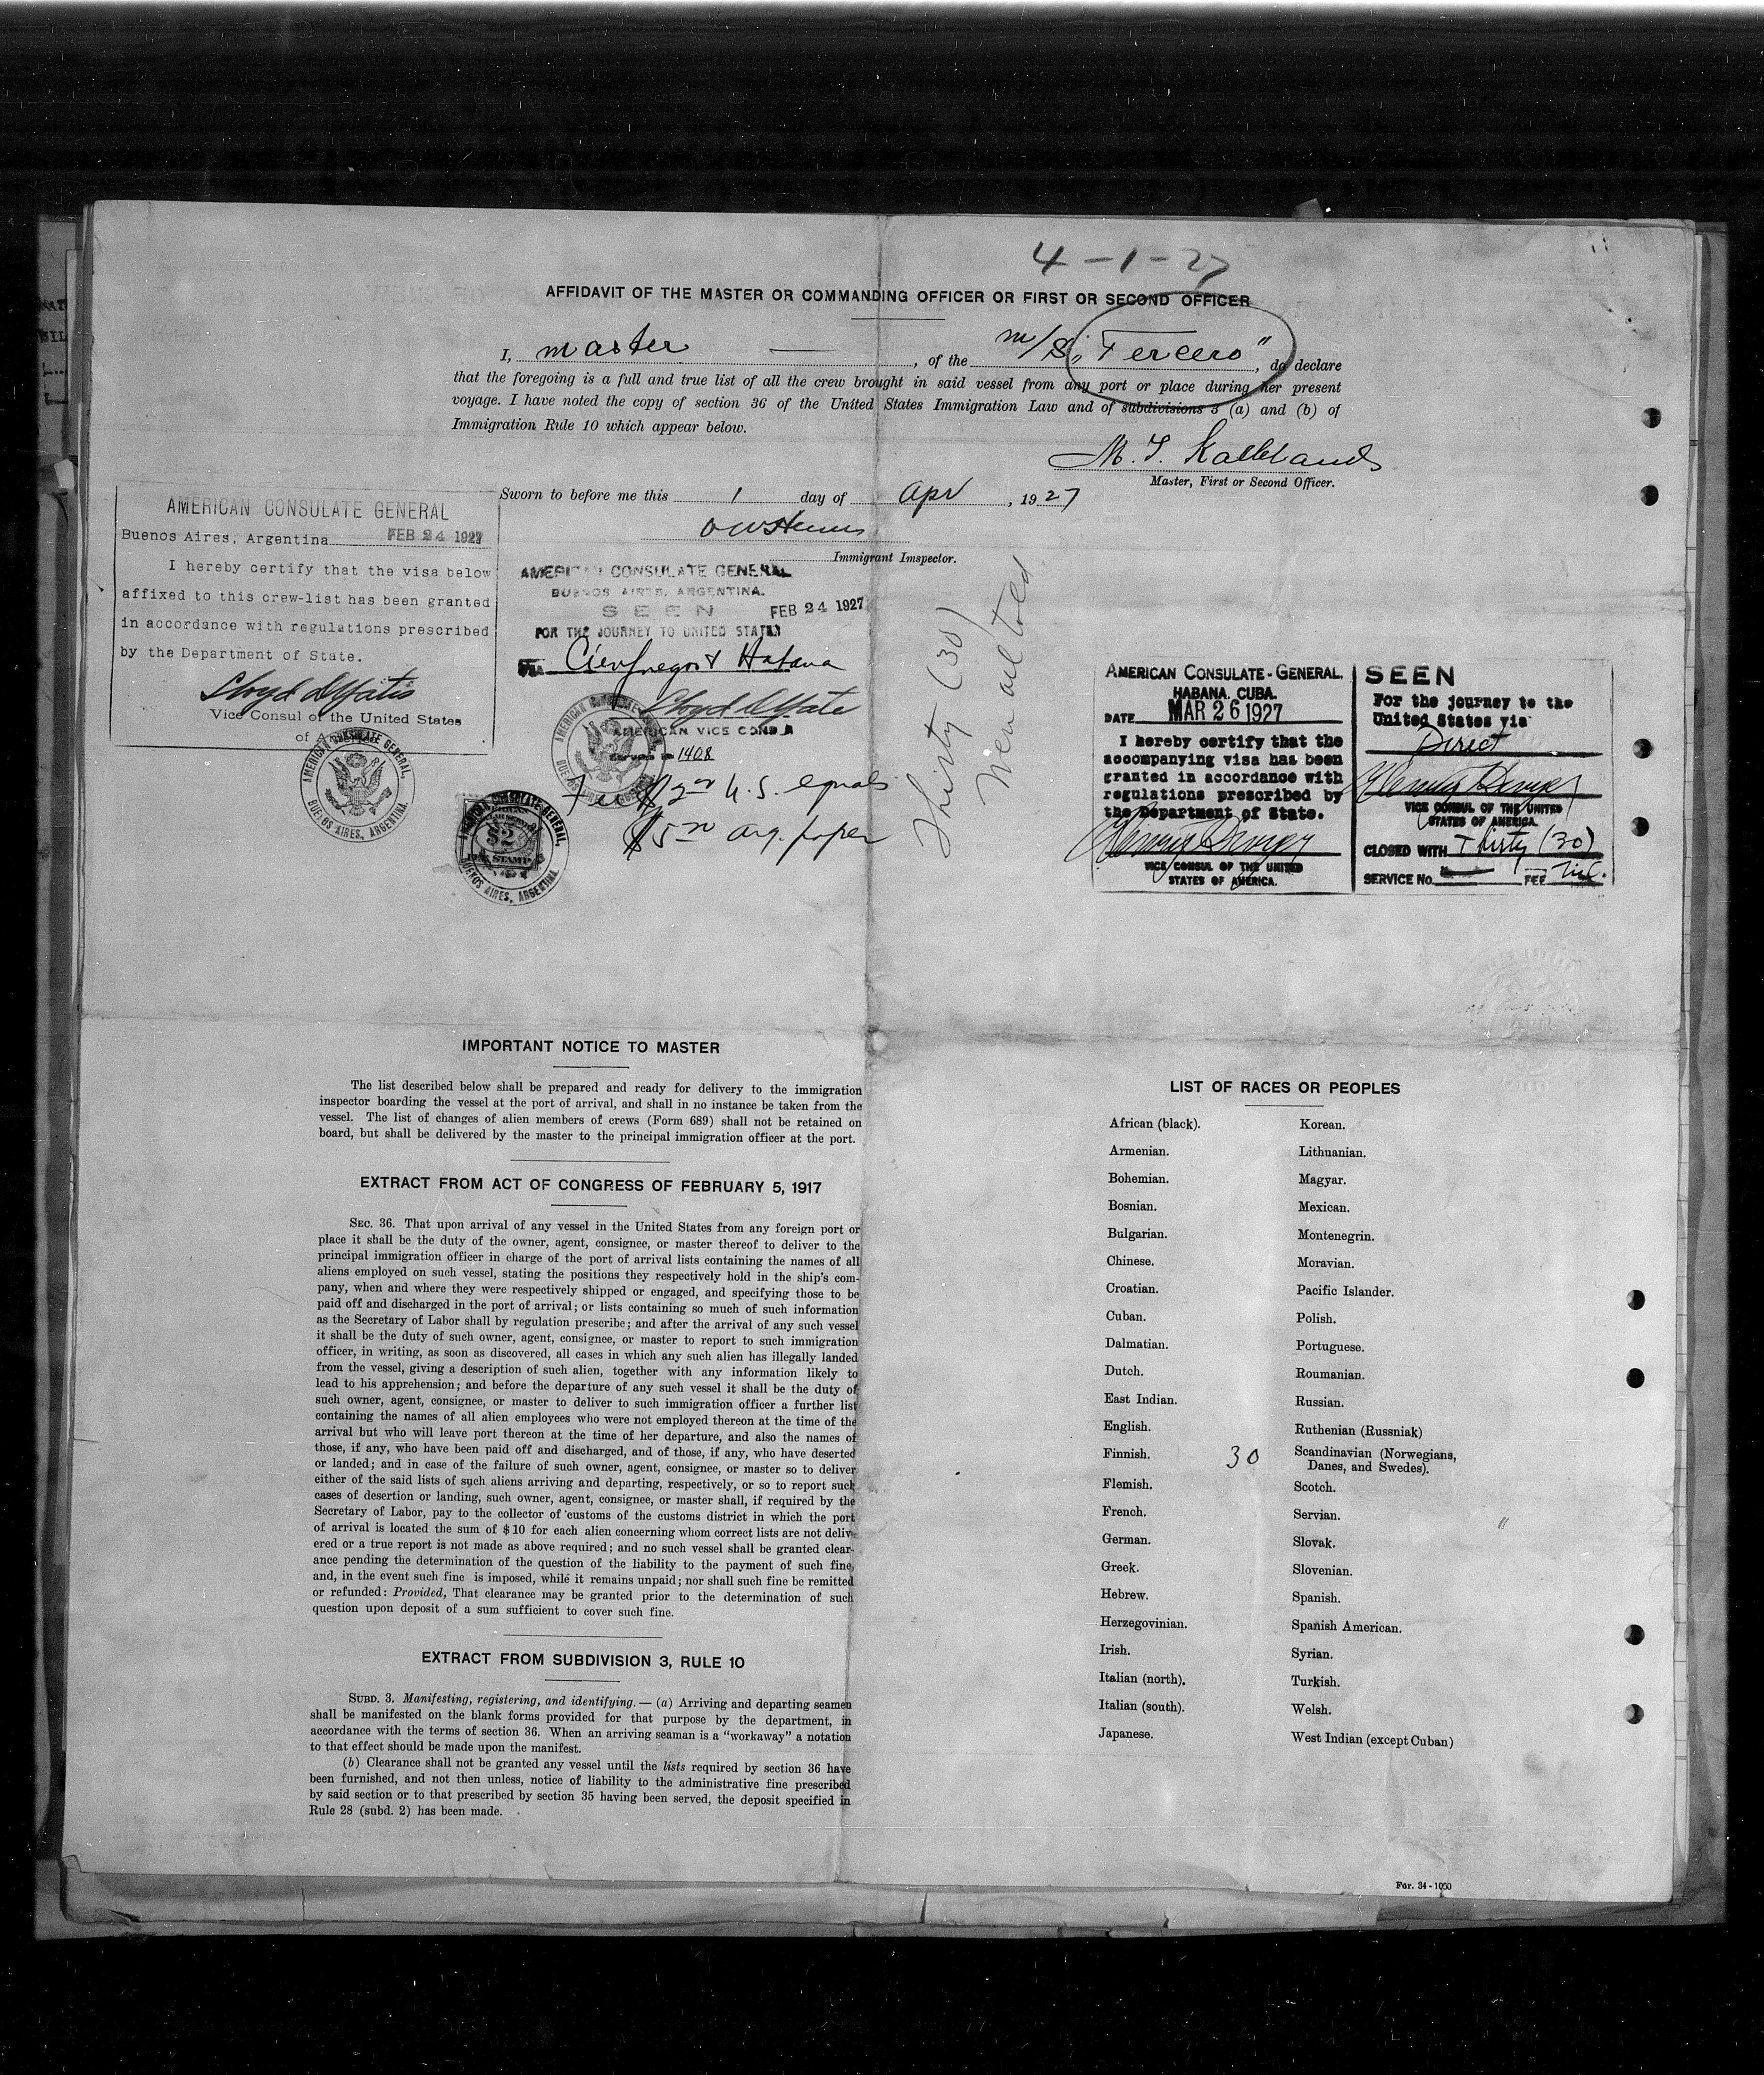 4-1-27
AFFIDAVIT OF THE MASTER OR COMMANDING OFFICER OR FIRST OR SECOND OFFICER
I, master, of the m/S „Tercero”, do declare
that the foregoing is a full and true list of all the crew brought in said vessel from any port or place during her present
voyage. I have noted the copy of section 36 of the United States Immigration Law and of subdivisions 3 (a) and (b) of
Immigration Rule 10 which appear below.
M. T.
Master, First or Second Officer.
Sworn to before me this 1 day of Apr, 1927
Immigrant Imspector.
AMERICAN CONSULATE GENERAL
Buenos Aires, Argentina FEB 24 1927
I hereby certify that the visa below
affixed to this crew-list has been granted
in accordance with regulations prescribed
by the Department of State.
Lloyd D Yates
Vice Consul of the United States
of A
AMERICAN CONSULATE GENERAL,
BUENOS AIRES, ARGENTINA.
AMERICAN CONSULATE GENERAL
BUENOS AIRES, ARGENTINA.
SEEN FEB 24 1927
FOR THE JOURNEY TO UNITED STATES
VIA Cienfuegos & Habana
Lloyd D Yates
AMERICAN VICE CONSUL
Service no 1408
Fee $2.00 U.S. equals
$5.00 Arg. paper
AMERICAN CONSULATE GENERAL,
$2
FEE STAMP
BUENOS AIRES, ARGENTINA
Thirty (30)
men all toed
AMERICAN CONSULATE-GENERAL.
HABANA. CUBA.
DATE MAR 26 1927
I hereby certify that the
accompanying visa has been
granted in accordance with
regulations prescribed by
the Department of State.
VICE CONSUL OF THE UNITED
STATES OF AMERICA.
SEEN
For the journey to the
United States via
Direct
VICE CONSUL OF THE UNITED
STATES OF AMERICA.
CLOSED WITH Thirty (30)
SERVICE No. — FEE Nil.
IMPORTANT NOTICE TO MASTER
The list described below shall be prepared and ready for delivery to the immigration
inspector boarding the vessel at the port of arrival, and shall in no instance be taken from the
vessel. The list of changes of alien members of crews (Form 689) shall not be retained on
board, but shall be delivered by the master to the principal immigration officer at the port.
EXTRACT FROM ACT OF CONGRESS OF FEBRUARY 5, 1917
SEC. 36. That upon arrival of any vessel in the United States from any foreign port or
place it shall be the duty of the owner, agent, consignee, or master thereof to deliver to the
principal immigration officer in charge of the port of arrival lists containing the names of all
aliens employed on such vessel, stating the positions they respectively hold in the ship's com-
pany, when and where they were respectively shipped or engaged, and specifying those to be
paid off and discharged in the port of arrival; or lists containing so much of such information
as the Secretary of Labor shall by regulation prescribe; and after the arrival of any such vessel
it shall be the duty of such owner, agent, consignee, or master to report to such immigration
officer, in writing, as soon as discovered, all cases in which any such alien has illegally landed
from the vessel, giving a description of such alien, together with any information likely to
lead to his apprehension; and before the departure of any such vessel it shall be the duty of
such owner, agent, consignee, or master to deliver to such immigration officer a further list
containing the names of all alien employees who were not employed thereon at the time of the
arrival but who will leave port thereon at the time of her departure, and also the names of
those, if any, who have been paid off and discharged, and of those, if any, who have deserted
or landed; and in case of the failure of such owner, agent, consignee, or master so to deliver
either of the said lists of such aliens arriving and departing, respectively, or so to report such
cases of desertion or landing, such owner, agent, consignee, or master shall, if required by the
Secretary of Labor, pay to the collector of customs of the customs district in which the port
of arrival is located the sum of $10 for each alien concerning whom correct lists are not deliv-
ered or a true report is not made as above required; and no such vessel shall be granted clear-
ance pending the determination of the question of the liability to the payment of such fine,
and, in the event such fine is imposed, while it remains unpaid; nor shall such fine be remitted
or refunded: Provided, That clearance may be granted prior to the determination of such
question upon deposit of a sum sufficient to cover such fine.
EXTRACT FROM SUBDIVISION 3, RULE 10
SUBD. 3. Manifesting, registering, and identifying.—(a) Arriving and departing seamen
shall be manifested on the blank forms provided for that purpose by the department, in
accordance with the terms of section 36. When an arriving seaman is a "workaway" a notation
to that effect should be made upon the manifest.
(b) Clearance shall not be granted any vessel until the lists required by section 36 have
been furnished, and not then unless, notice of liability to the administrative fine prescribed
by said section or to that prescribed by section 35 having been served, the deposit specified in
Rule 28 (subd. 2) has been made.
LIST OF RACES OR PEOPLES
African (black).
Armenian.
Bohemian.
Bosnian.
Bulgarian.
Chinese.
Croatian.
Cuban.
Dalmatian.
Dutch.
East Indian.
English.
Finnish.
Flemish.
French.
German.
Greek.
Hebrew.
Herzegovinian.
Irish.
Italian (north).
Italian (south).
Japanese.
Korean.
Lithuanian.
Magyar.
Mexican.
Montenegrin.
Moravian.
Pacific Islander.
Polish.
Portuguese.
Roumanian.
Russian.
Ruthenian (Russniak)
30 Scandinavian (Norwegians,
Danes, and Swedes).
Scotch.
Servian.
Slovak.
Slovenian.
Spanish.
Spanish American.
Syrian.
Turkish.
Welsh.
West Indian (except Cuban)
For. 34-1050